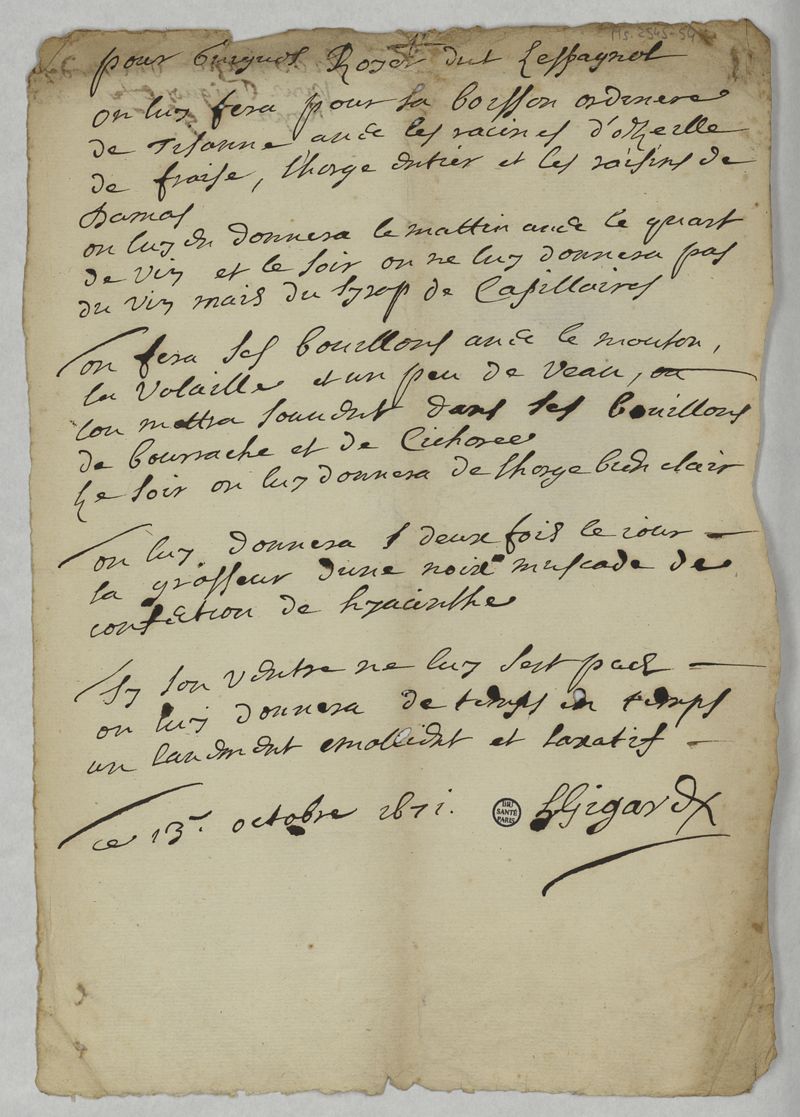 Ms. 2545-54
pour Roser dit Lespagnol
on luy fera pour sa boisson ordinere
de Tisanne avec les racines d'ozeille
de fraise, lhorge entier et les raisins de
Damas
on luy en donnera le mattin avec le quart
de vin et le soir on ne luy donnera pas
du vin mais du syrop de Capillaires
on fera ses bouillons avec le mouton,
la volaille et un peu de veau, ou
lon mettra souvent dans ses bouillons
de bourrache et de Cichoree
Le soir on luy donnera de lhorge bien clair
on luy donnera deux fois le iour
la grosseur dune noix muscade de
confection de hyacinthe
Sy son ventre ne luy sert pas
on luy donnera de temps en temps
un lavement emollient et laxatif
ce 13e octobre 1671. LGigard
BIU
SANTÉ
PARIS